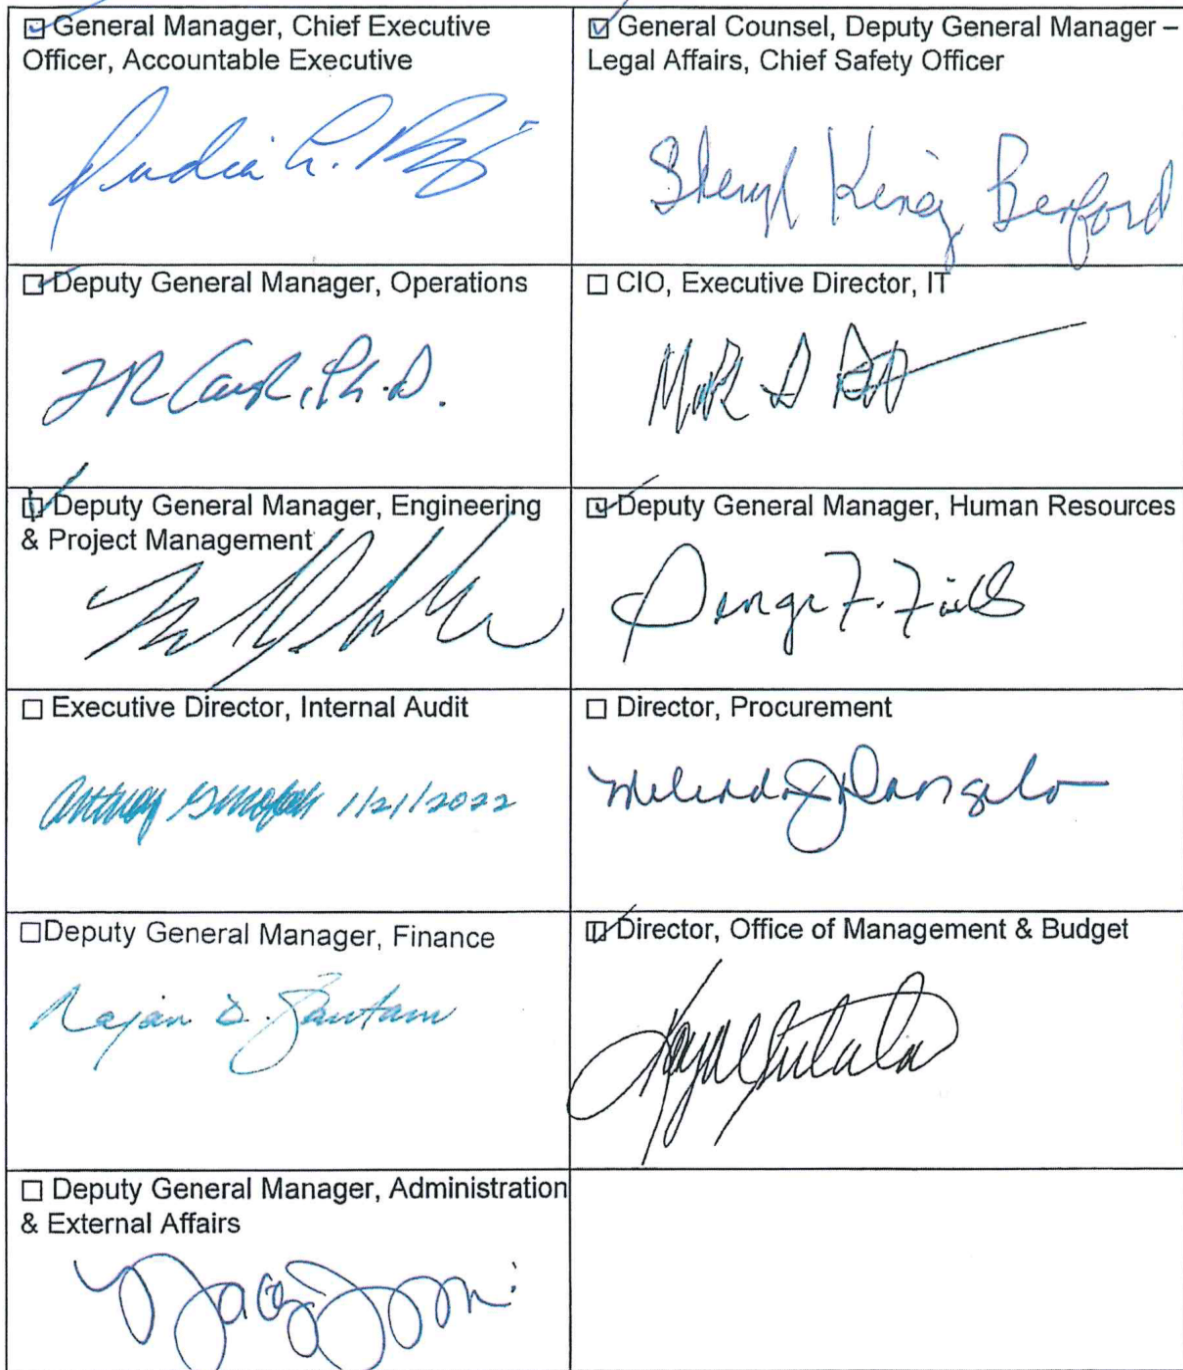 ☑ General Manager, Chief Executive
Officer, Accountable Executive
☑ General Counsel, Deputy General Manager –
Legal Affairs, Chief Safety Officer
Sheryl King Benford
☑ Deputy General Manager, Operations
Ph.D.
☐ CIO, Executive Director, IT
☑ Deputy General Manager, Engineering
& Project Management
☑ Deputy General Manager, Human Resources
George F. Fields
☐ Executive Director, Internal Audit
Anthony 1/21/2022
☐ Director, Procurement
☐ Deputy General Manager, Finance
Rajan D. Gautam
☑ Director, Office of Management & Budget
☐ Deputy General Manager, Administration
& External Affairs